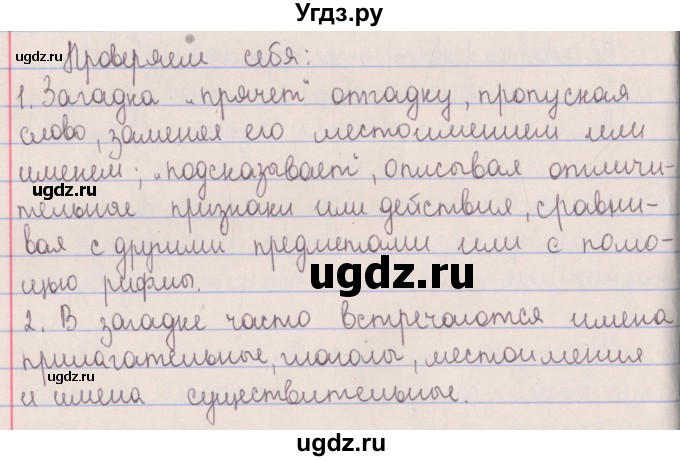 Угдз.ру
Проверяем себя:
ugdz.ru
ugdz.ru
1. Загадка „прячет" отгадку, пропуская
слово, заменяя его местоимением или
именем; „подсказывает", описывая отличи-
ugdz.ru
тельные признаки или действия, сравни-
вая с другими предметами или с помо-
щью рифмы.
ugdz.ru
2. В загадке часто встречаются имена
прилагательные, глаголы, местоимения
ugdz.ru
и имена существительные.
ugdz.ru